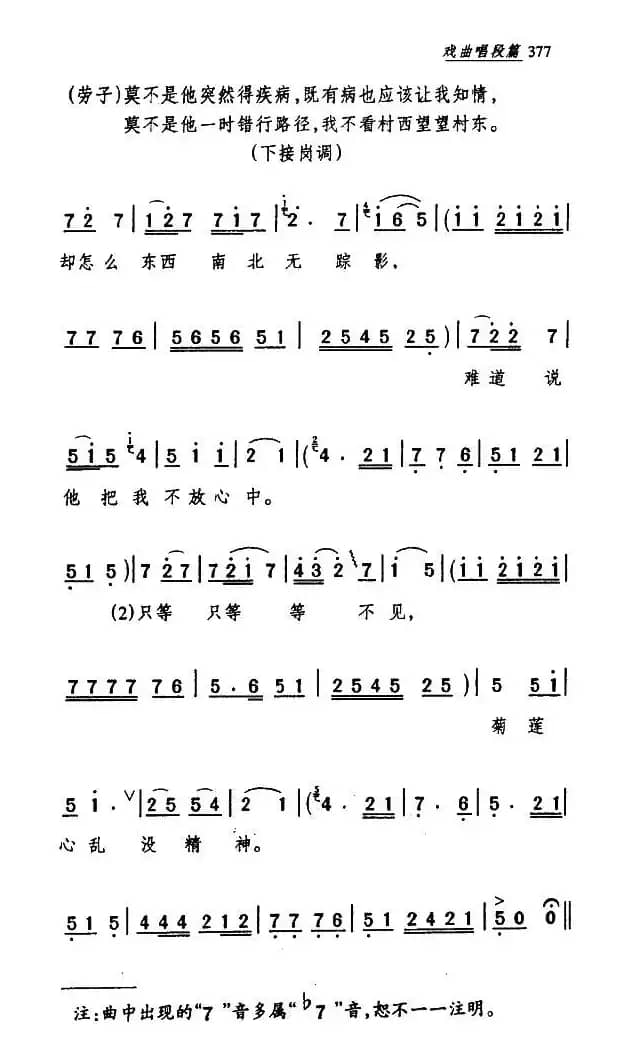 戏曲唱段篇 377
(劳子)莫不是他突然得疾病,既有病也应该让我知情,
莫不是他一时错行路径,我不看村西望望村东。
(下接岗调)
7 2 7 | 1 2 7 7 1 7 | 1 2 . 7 | 4 1 6 5 | ( 1 1 2 1 2 1 |
却怎么 东西 南北无 踪 影,
7 7 7 6 | 5 6 5 6 5 1 | 2 5 4 5 2 5 ) | 7 2 2 7 |
难道 说
5 1 5 1 4 | 5 1 1 | 2 1 | ( 2 4 . 2 1 | 7 7 6 | 5 1 2 1 |
他 把 我 不 放 心 中。
5 1 5 ) | 7 2 7 | 7 2 1 7 | 4 3 2 \ 7 | 1 5 | ( 1 1 2 1 2 1 |
(2)只等 只等 等 不 见,
7 7 7 7 7 6 | 5 . 6 5 1 | 2 5 4 5 2 5 ) | 5 5 1 |
菊 莲
5 1 . ∨ | 2 5 5 4 | 2 1 | ( 5 4 . 2 1 | 7 . 6 | 5 . 2 1 |
心乱 没 精 神。
5 1 5 | 4 4 4 2 1 2 | 7 7 7 6 | 5 1 2 4 2 1 | > 5 0 0 ‖
注:曲中出现的“7”音多属“♭7”音,恕不一一注明。